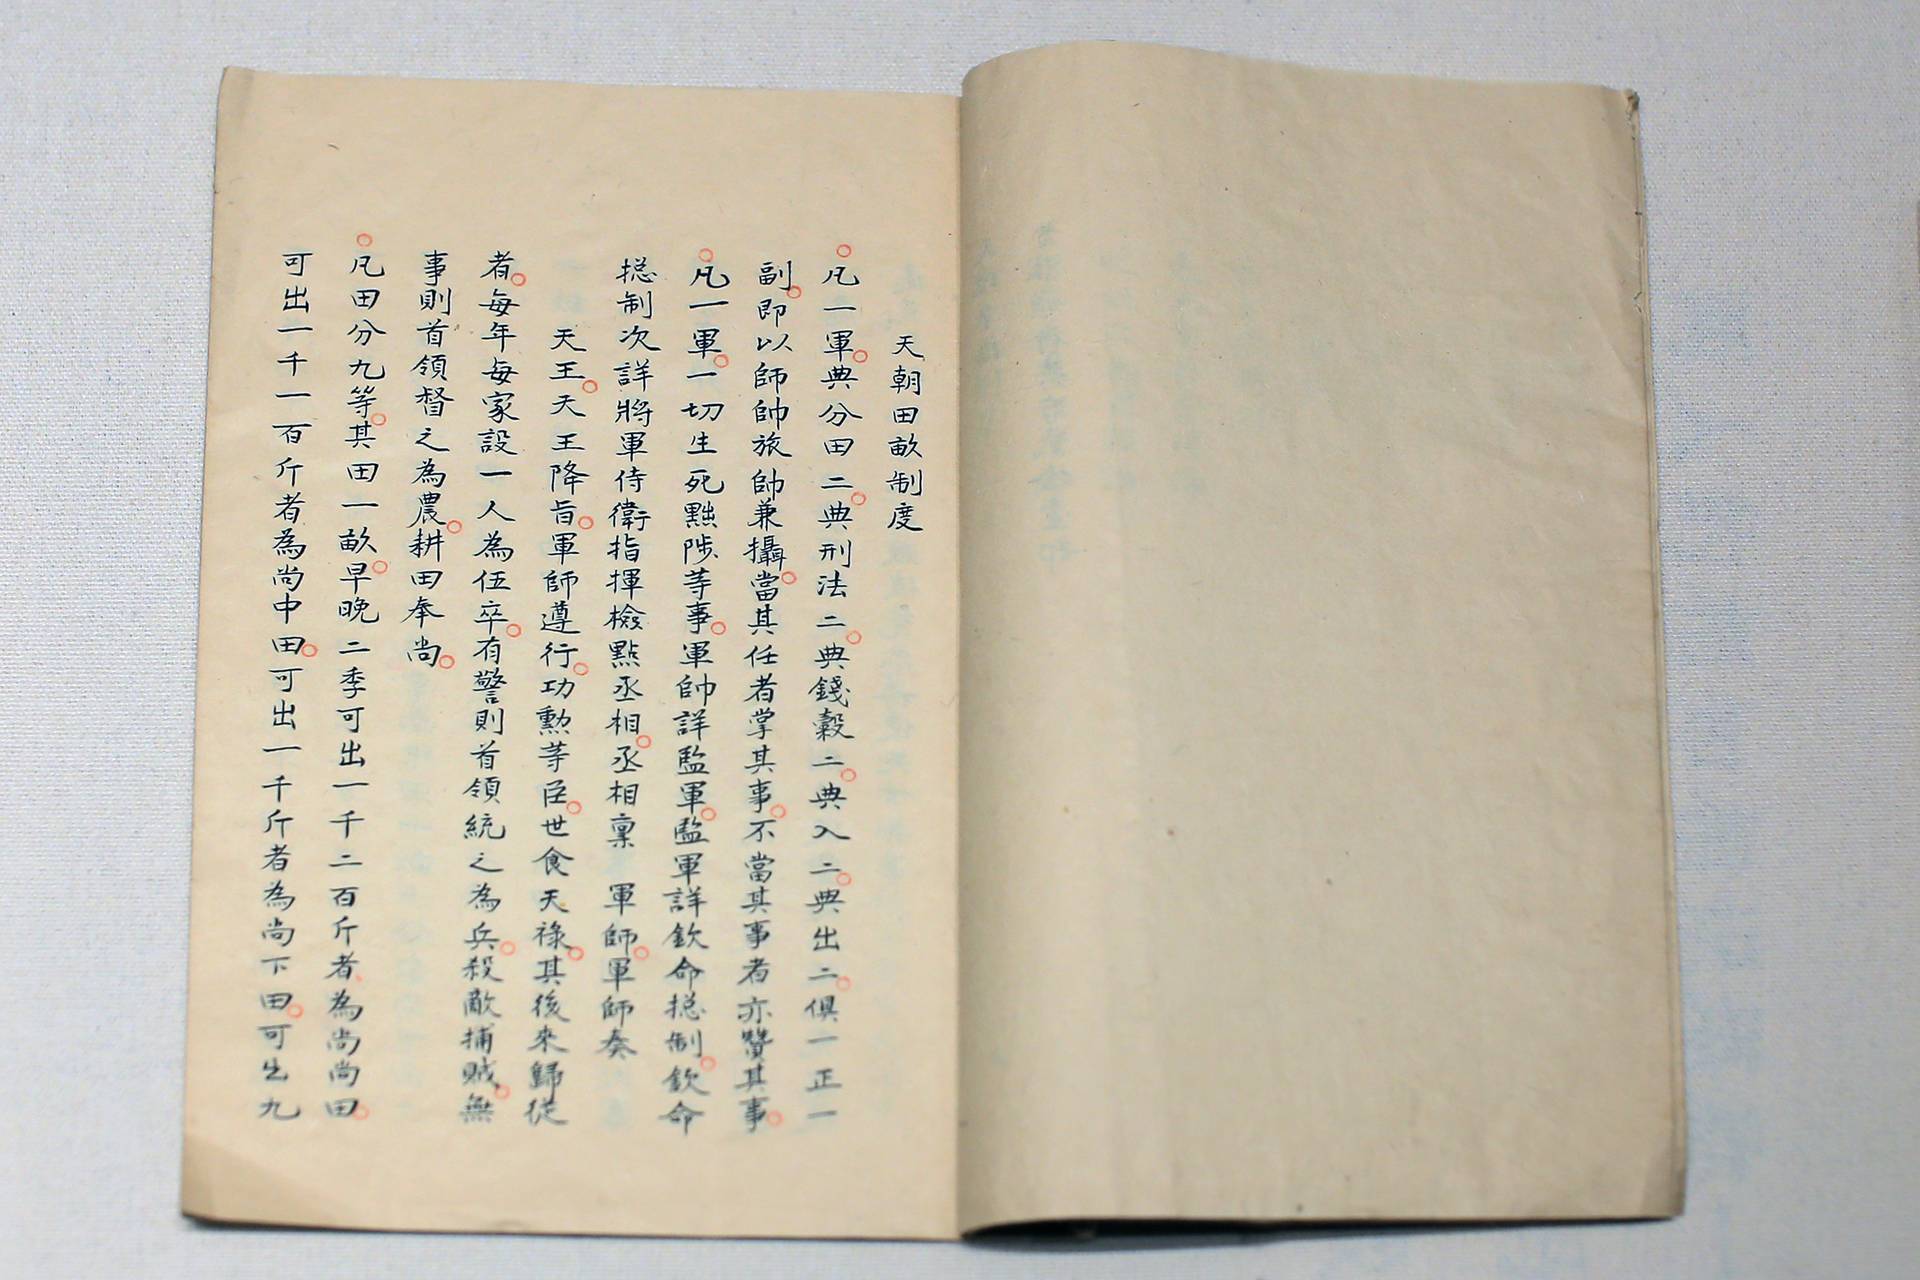 天朝田畝制度
凡一軍典分田二典刑法二典錢穀二典入二典出二俱一正一
副即以師帥旅帥兼攝當其任者掌其事不當其事者亦贊其事
凡一軍一切生死黜陟等事軍帥詳監軍監軍詳欽命揔制欽命
揔制次詳將軍侍衛指揮檢點丞相丞相稟 軍師軍師奏
天王天王降旨軍師遵行功勳等臣世食天祿其後來歸從
者每年每家設一人為伍卒有警則首領統之為兵殺敵捕賊無
事則首領督之為農耕田奉尚
凡田分九等其田一畝早晚二季可出一千二百斤者為尚尚田
可出一千一百斤者為尚中田可出一千斤者為尚下田可出九